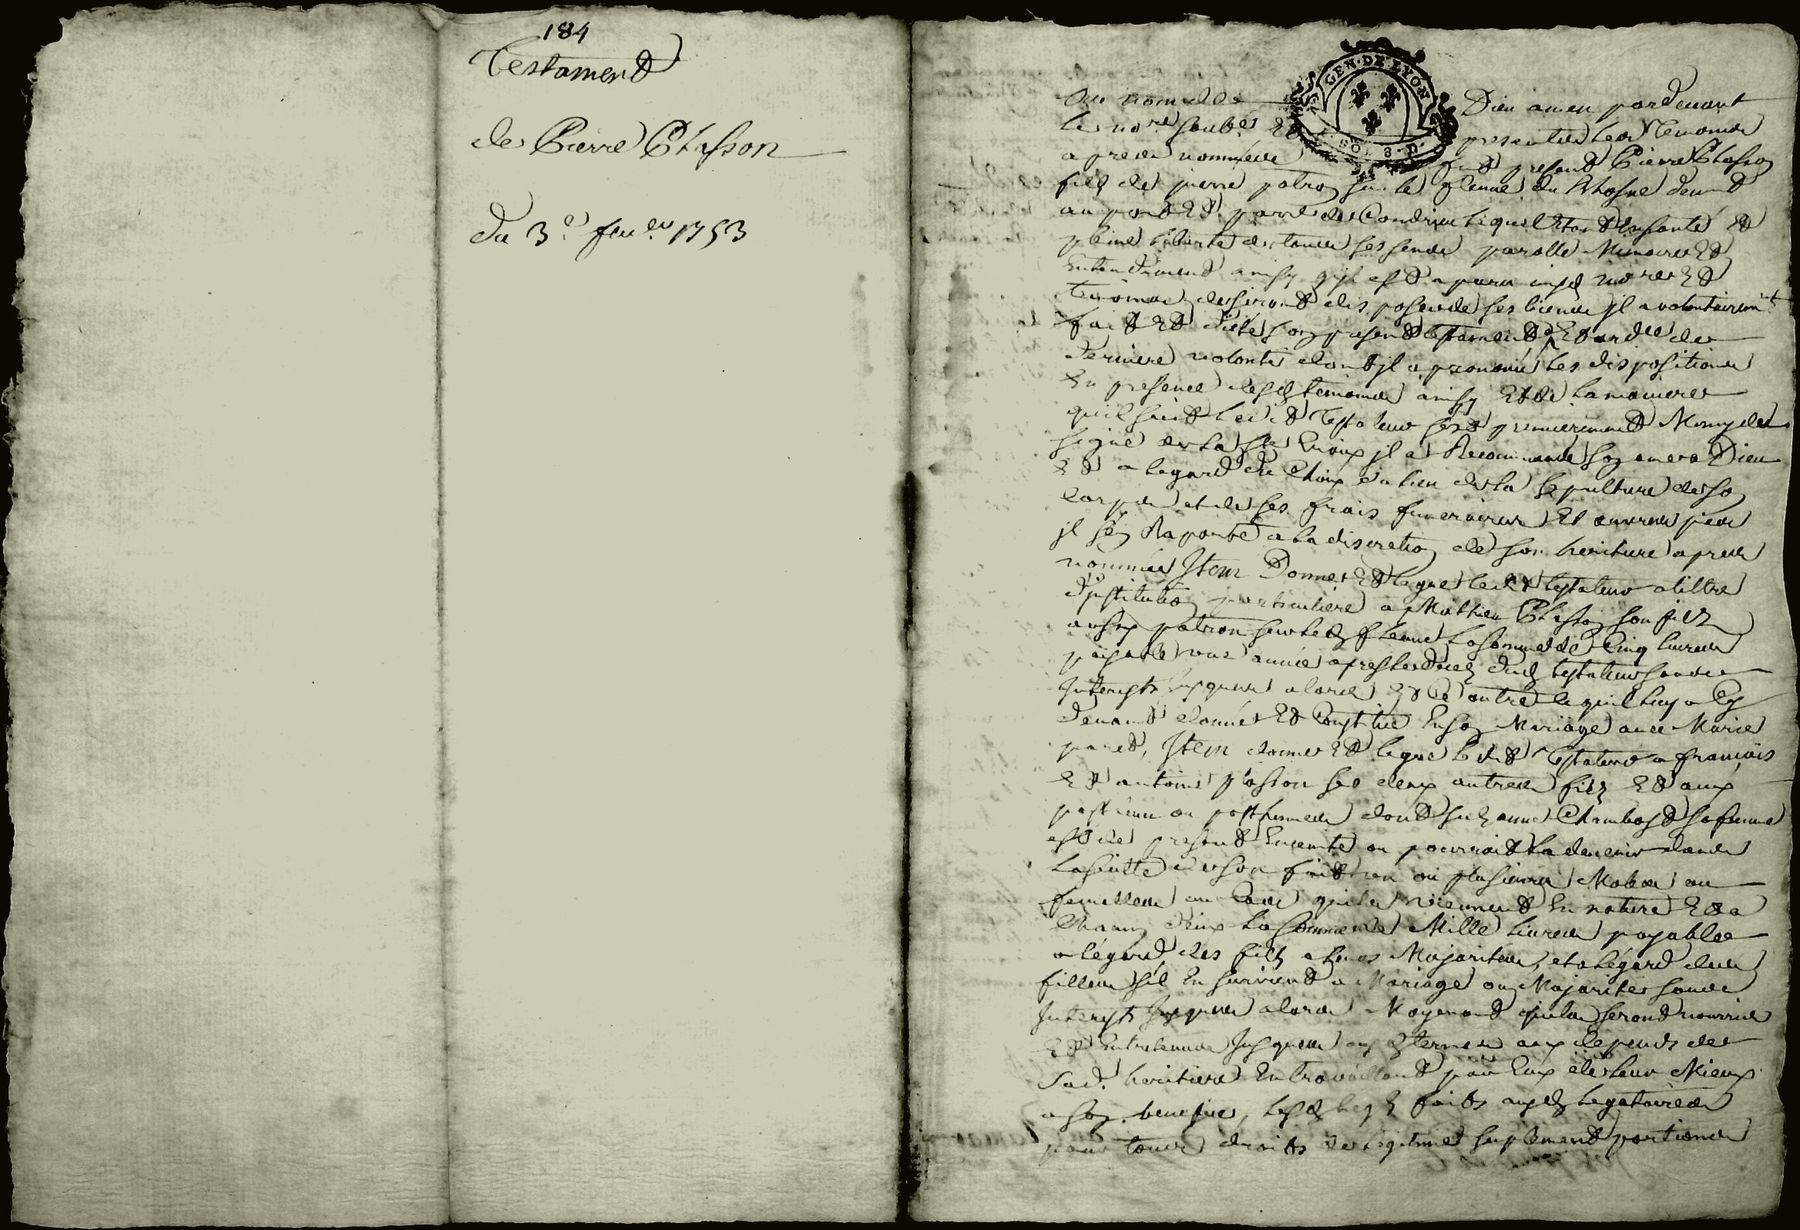 184
Testament
de Pierre Plasson
Du 3e feuer 1753
GEN · DE LYON
Au nom de Dieu amen pardeuant
les nore soubes Et presentes les temoins
apres nommés fut present Pierre Plasson
fils de pierre patron sur le fleuue du Rhosne demt
au port Et parre de Condrieu lequel Etant En santé Et
pleine liberté de tous ses sens parolle Memoire Et
Entendement ainsy qu'il est aparu auxd nores Et
temoins desirant disposer de ses biens jl a volontairemt
fait Et dicté son present testament Et ord de
derniere volonté dont jl a prononcé les dispositions
En presence desd temoins ainsy Et de la maniere
quil suit ledit Testateur sest premierement Muny du
signe de la ste Croix jl a Recommandé son ame a Dieu
Et a legard du Choix du lieu de la sepulture de son
Corps et de ses frais funeraires Et oeuvres pies
jl sen Raporte a la discretion de son heritiere apres
nommée Item Donne Et legue ledit testateur a tiltre
d'institution particuliere a Mathieu Plasson son filz
aussy patron sur led fleuue la somme de Cinq liures
payable une année apres le decez dud testateur sans
Interests jusques alors Et Ce outre ce quil luy a Cy
deuant donné Et Constitué En son Mariage auec Marie
paret, Item donne Et legue ledit Testateur a françois
Et antoine plasson ses deux autres filz Et aux
posthume ou posthumes dont suzanne Chambost sa femme
est de present Enceinte ou pourroit la deuenir dans
la suitte de son fait un ou plusieurs Males ou
femelles au Cas quils viennent En nature Et a
Chacun d'eux la somme de Mille liures payable
a légard des filz a leurs Majorités, et a légard des
filles sil En suruient a Mariage ou Majorité sans
Interests jusques alors Moyenant quils seront nourris
Et Entretenus jusques auxd termes aux depends de
sad. heritiere En trauaillant par Eux de leur Mieux
a son benefice, lesd legs faits auxd legataires
pour tous droits de legitime suplement portions